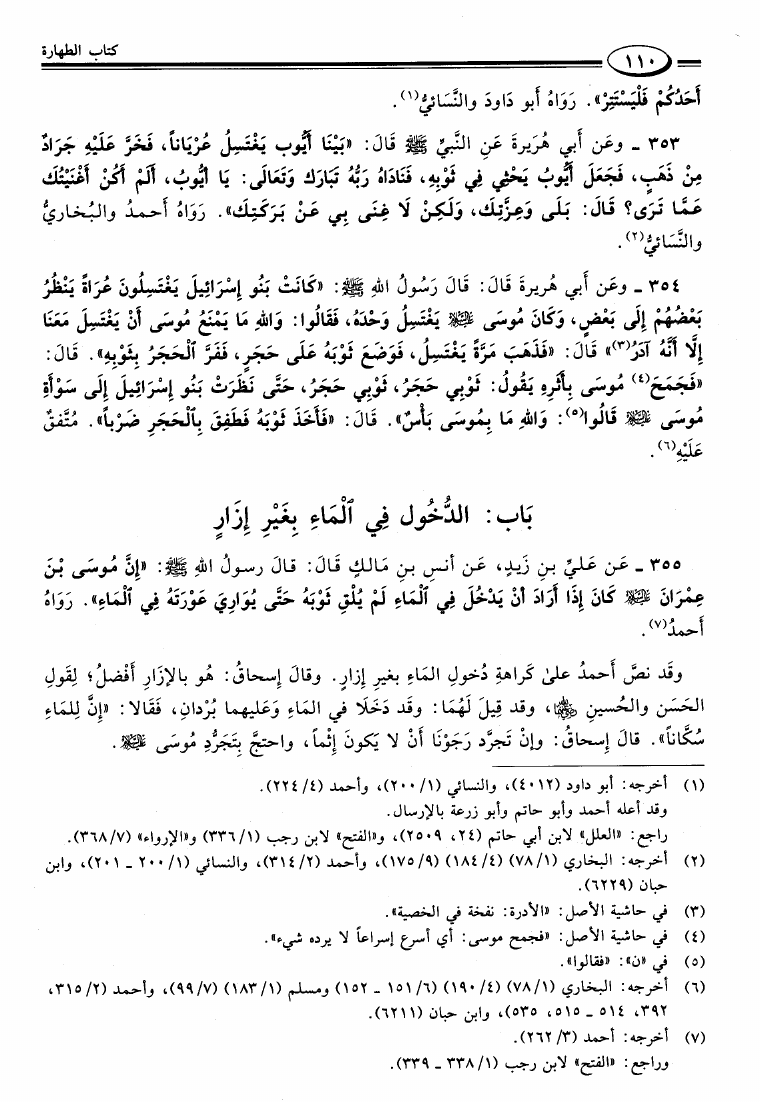 كتاب الطهارة
١١٠
أَحَدُكُمْ فَلْيَسْتَتِرْ». رَوَاهُ أبو دَاودَ والنَّسَائيُّ(١).
٣٥٣ ـ وعَن أَبي هُرَيرةَ عَنِ النَّبيِّ ﷺ قَالَ: «بَيْنَا أَيُّوب يَغْتَسِلُ عُرْيَاناً، فَخَرَّ عَلَيْهِ جَرَادٌ
مِنْ ذَهَبٍ، فَجَعَلَ أَيُّوبُ يَحْثِي فِي ثَوْبِهِ، فَنَادَاهُ رَبُّهُ تَبَارَكَ وَتَعَالَى: يَا أَيُّوبُ، أَلَمْ أَكُنْ أَغْنَيْتُكَ
عَمَّا تَرَى؟ قَالَ: بَلَى وَعِزَّتِكَ، وَلَكِنْ لَا غِنَى بِي عَنْ بَرَكَتِكَ». رَوَاهُ أَحمدُ والبُخاريُّ
والنَّسَائيُّ(٢).
٣٥٤ ـ وعَن أَبي هُريرةَ قَالَ: قَالَ رَسُولُ اللهِ ﷺ: «كَانَتْ بَنُو إِسْرَائِيلَ يَغْتَسِلُونَ عُرَاةً يَنْظُرُ
بَعْضُهُمْ إِلَى بَعْضٍ، وَكَانَ مُوسَى عليه السلام يَغْتَسِلُ وَحْدَهُ، فَقَالُوا: وَاللهِ مَا يَمْنَعُ مُوسَى أَنْ يَغْتَسِلَ مَعَنَا
إِلَّا أَنَّهُ آدَرُ(٣)» قَالَ: «فَذَهَبَ مَرَّةً يَغْتَسِلُ، فَوَضَعَ ثَوْبَهُ عَلَى حَجَرٍ، فَفَرَّ ٱلْحَجَرُ بِثَوْبِهِ». قَالَ:
«فَجَمَحَ(٤) مُوسَى بِأَثَرِهِ يَقُولُ: ثَوْبِي حَجَرُ، ثَوْبِي حَجَرُ، حَتَّى نَظَرَتْ بَنُو إِسْرَائِيلَ إِلَى سَوْأَةِ
مُوسَى عليه السلام قَالُوا(٥): وَاللهِ مَا بِمُوسَى بَأْسٌ». قَالَ: «فَأَخَذَ ثَوْبَهُ فَطَفِقَ بِٱلْحَجَرِ ضَرْباً». مُتَّفقٌ
عَلَيْهِ(٦).
بَاب: الدُّخُول فِي ٱلْمَاءِ بِغَيْرِ إِزَارٍ
٣٥٥ ـ عَن عَليِّ بنِ زَيدٍ، عَن أَنسِ بنِ مَالكٍ قَالَ: قالَ رسولُ اللهِ ﷺ: «إِنَّ مُوسَى بْنَ
عِمْرَانَ عليه السلام كَانَ إِذَا أَرَادَ أَنْ يَدْخُلَ فِي ٱلْمَاءِ لَمْ يُلْقِ ثَوْبَهُ حَتَّى يُوَارِيَ عَوْرَتَهُ فِي ٱلْمَاءِ». رَوَاهُ
أَحمدُ(٧).
وقَد نصَّ أَحمدُ علىٰ كَراهةِ دُخولِ المَاءِ بغيرِ إزارٍ. وقالَ إسحاقُ: هُو بالإزَارِ أَفضلُ؛ لِقَولِ
الحَسَن والحُسينِ رضي الله عنهما، وقد قِيلَ لَهُمَا: وقَد دَخَلَا في المَاءِ وَعَليهما بُرْدانِ، فَقَالا: «إِنَّ لِلمَاءِ
سُكَّاناً». قالَ إسحاقُ: وإنْ تَجرَّد رَجَوْنَا أَنْ لا يَكونَ إِثْماً، واحتجَّ بِتَجَرُّدِ مُوسَى عليه السلام.
(١) أخرجه: أبو داود (٤٠١٢)، والنسائي (١/ ٢٠٠)، وأحمد (٤/ ٢٢٤).
وقد أعله أحمد وأبو حاتم وأبو زرعة بالإرسال.
راجع: «العلل» لابن أبي حاتم (٢٤، ٢٥٠٩)، و«الفتح» لابن رجب (١/ ٣٣٦) و«الإرواء» (٧/ ٣٦٨).
(٢) أخرجه: البخاري (١/ ٧٨) (٤/ ١٨٤) (٩/ ١٧٥)، وأحمد (٢/ ٣١٤)، والنسائي (١/ ٢٠٠ ـ ٢٠١)، وابن
حبان (٦٢٢٩).
(٣) في حاشية الأصل: «الأدرة: نفخة في الخصية».
(٤) في حاشية الأصل: «فجمح موسى: أي أسرع إسراعاً لا يرده شيء».
(٥) في «ن»: «فقالوا».
(٦) أخرجه: البخاري (١/ ٧٨) (٤/ ١٩٠) (٦/ ١٥١ ـ ١٥٢) ومسلم (١/ ١٨٣) (٧/ ٩٩)، وأحمد (٢/ ٣١٥،
٣٩٢، ٥١٤ ـ ٥١٥، ٥٣٥)، وابن حبان (٦٢١١).
(٧) أخرجه: أحمد (٣/ ٢٦٢).
وراجع: «الفتح» لابن رجب (١/ ٣٣٨ ـ ٣٣٩).